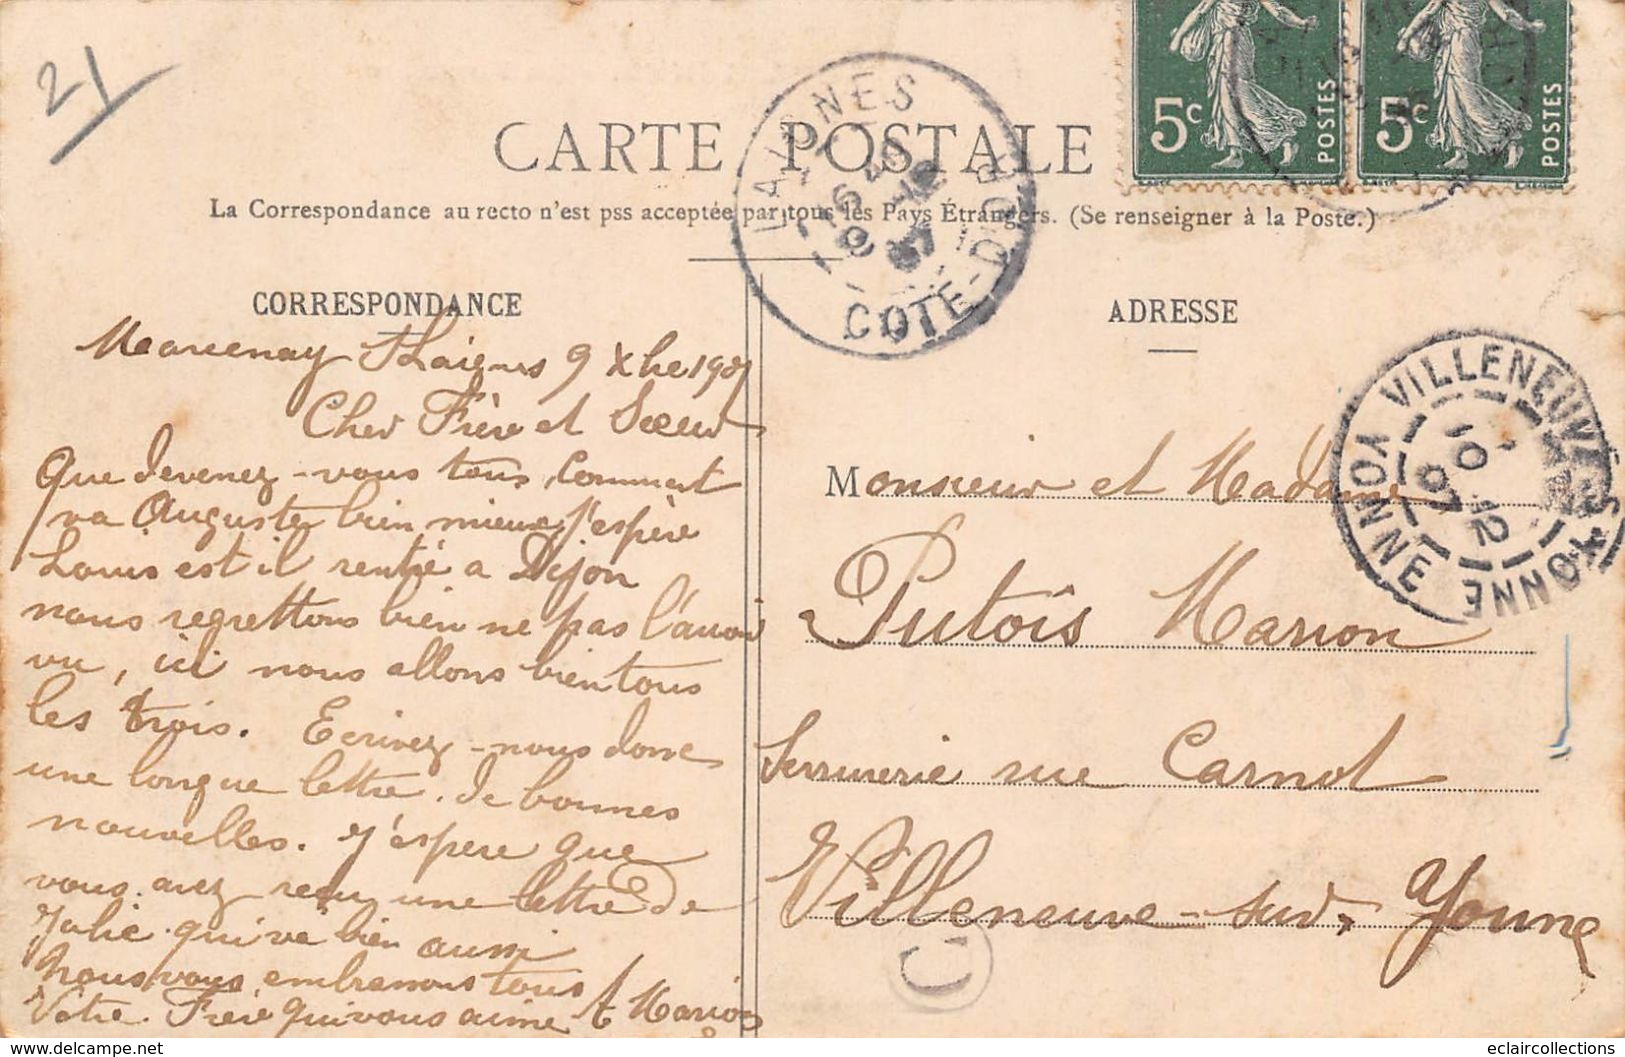 21
CARTE POSTALE
La Correspondance au recto n'est pss acceptée par tous les Pays Étrangers. (Se renseigner à la Poste.)
5c POSTES
5c POSTES
LAIGNES
COTE-D'OR
CORRESPONDANCE
Marcenay Laignes 9 Xbre 1907
Cher Frère et Sœur
Que devenez-vous tous, Comment
va Auguste bien mieux j'espère
Louis est il rentré a Dijon
nous regrettons bien ne pas l'avoir
vu, ici nous allons bien tous
les trois. Ecrivez-nous donc
une longue lettre. de bonnes
nouvelles. J'espere que
vous avez reçu une lettre de
Julie qui va bien aussi
Nous vous embrassons tous
Votre Frère qui vous aime Marion
ADRESSE
VILLENEUVE-S-YONNE
YONNE
10 12
07
Monsieur et Madame
Putois Marion
Serrurerie rue Carnot
Villeneuve-sur-Yonne
C
https://www.delcampe.net
eclaircollections